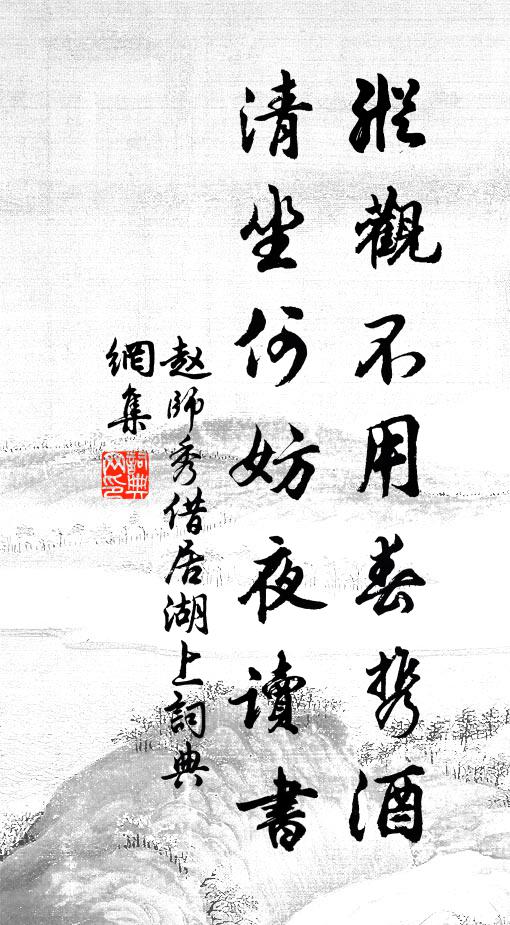 縱觀不用春携酒
清坐何妨夜讀書
赵師秀借居湖上詞典
網集
詞典
网印